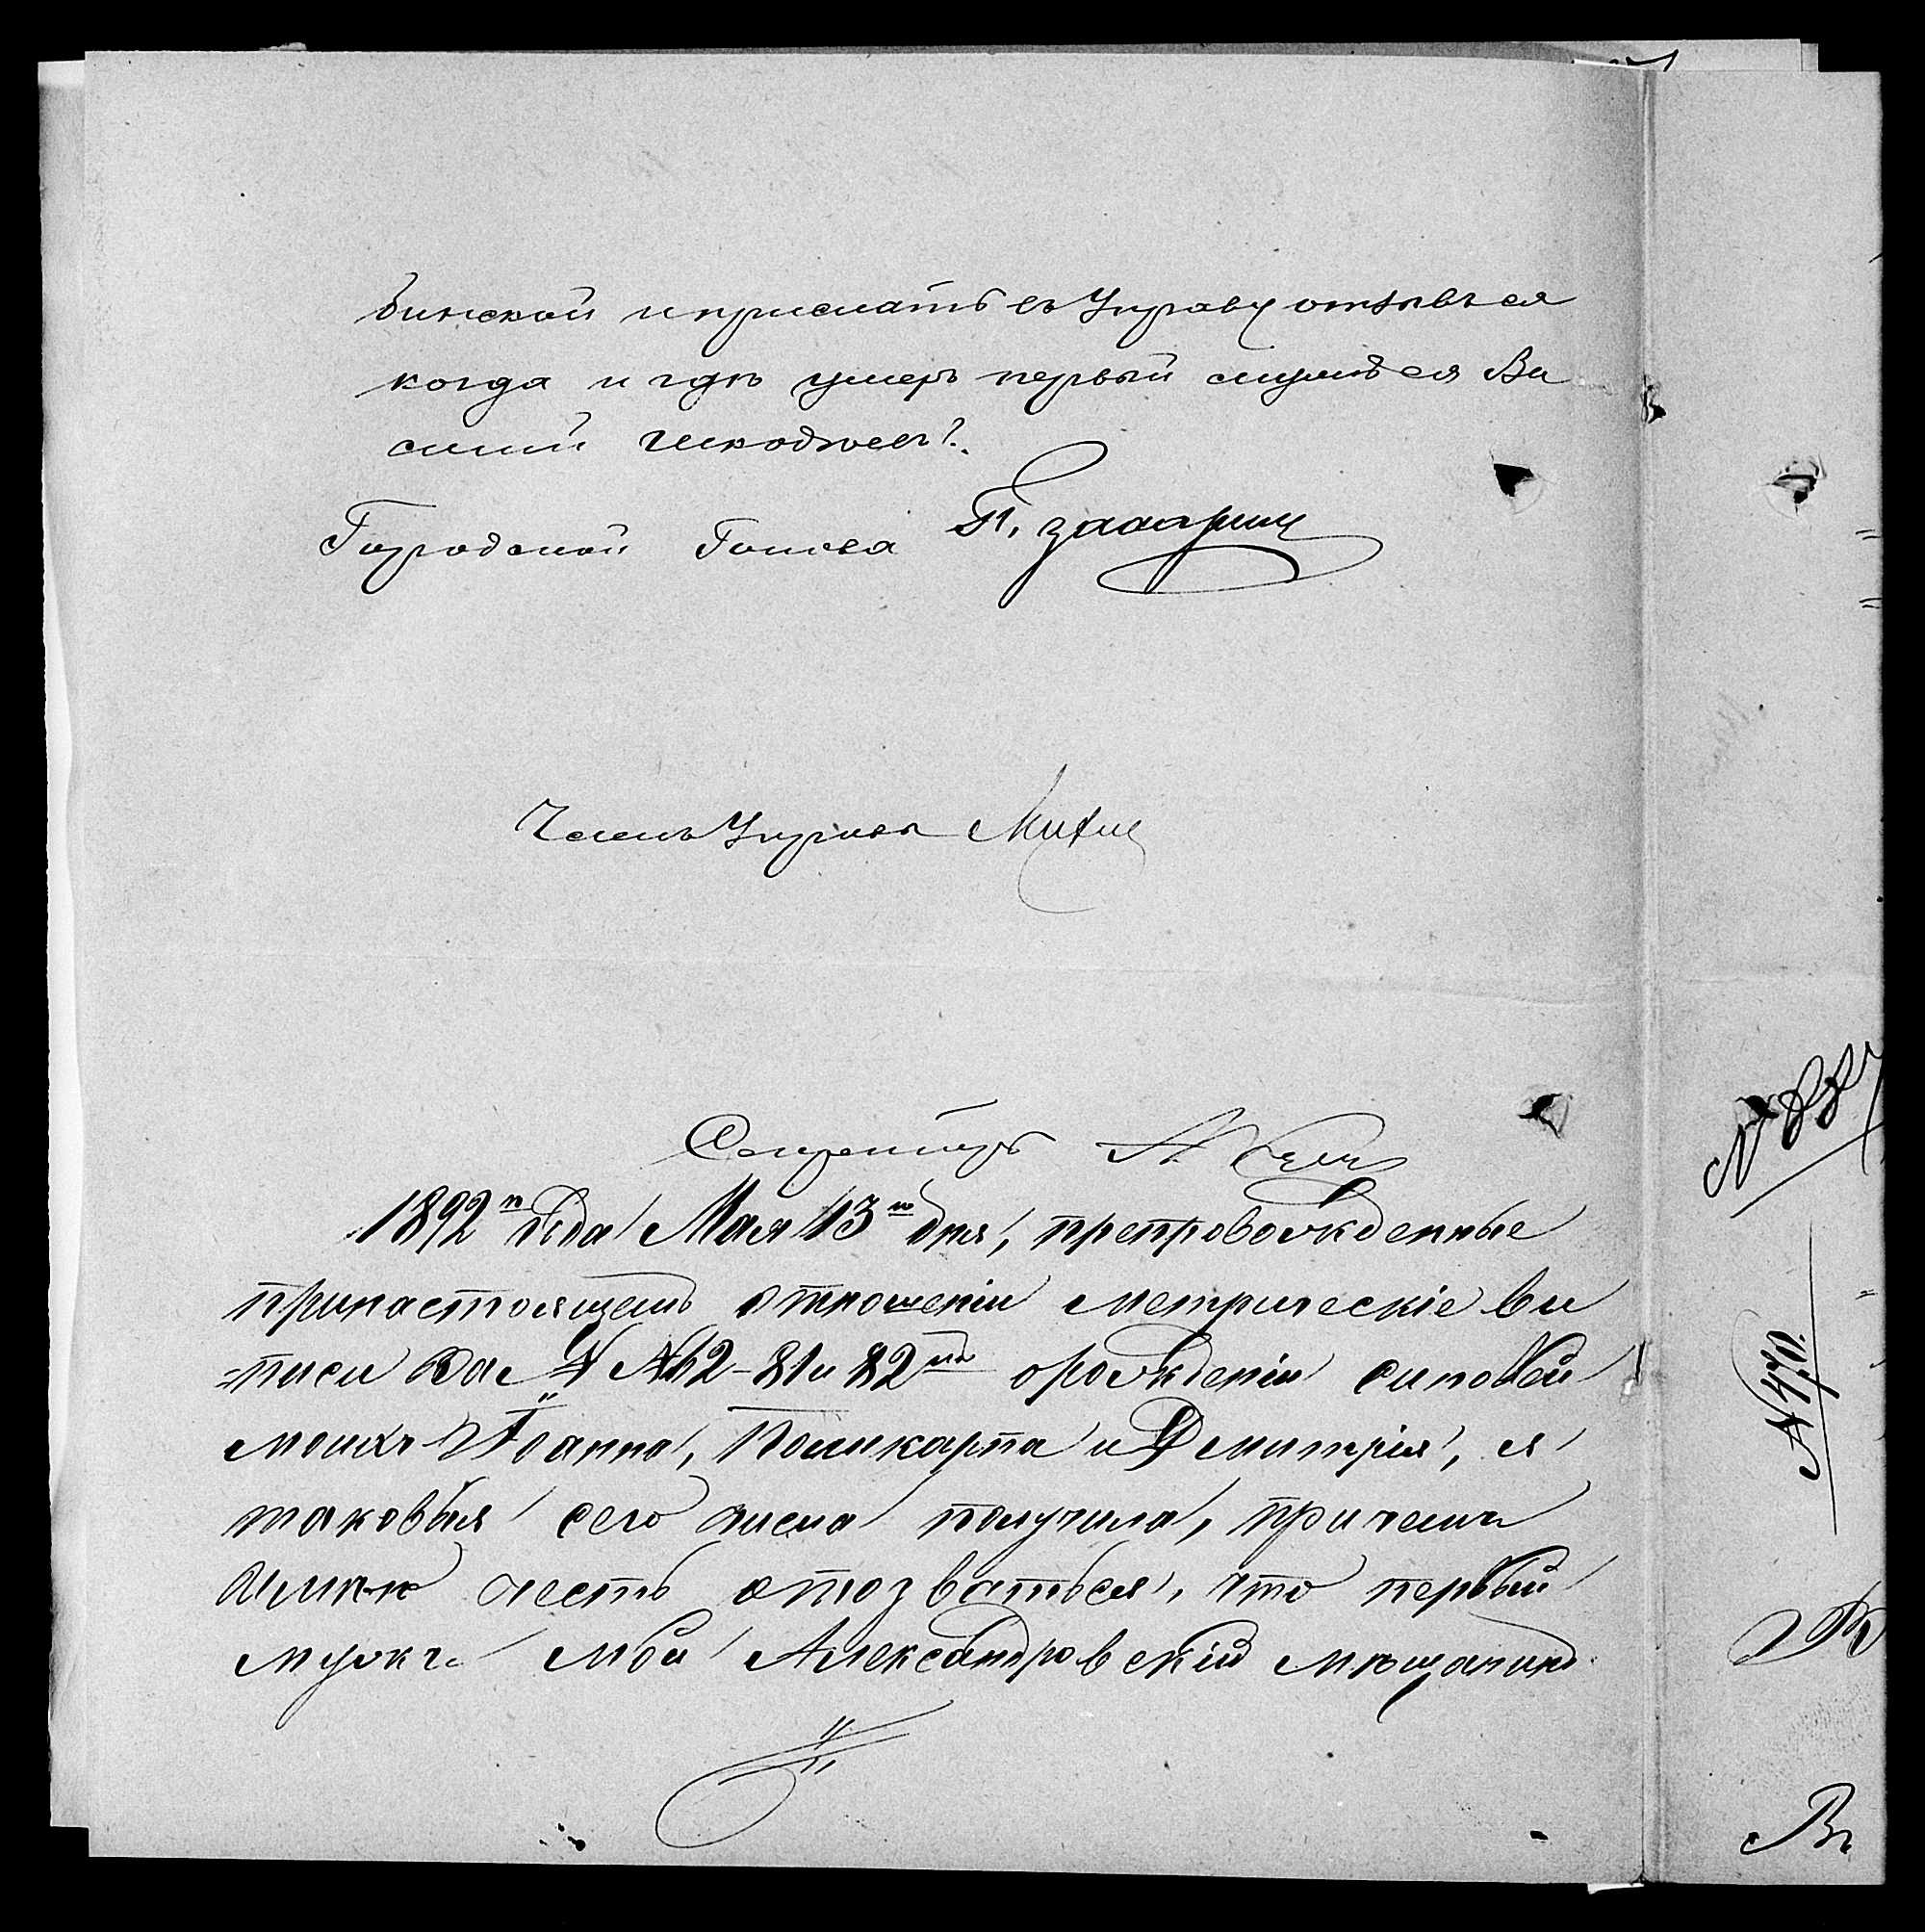 бинской и прислать въ Управу отзывъ ея
когда и гдѣ умеръ первый мужъ ея Ва
силій
Городской Голова П.
Членъ Управы
Секретарь А.
1892го года Мая 13го дня, препровожденные
принастоящемъ отношеніи метрическіе вы
=писи за №№ 62-81 и 82мъ орожденіи сыновей
моихъ Іоанна, Поликарпа и Дмитрія, я
таковыя сего числа получила, причемъ
имѣю честь отозваться, что первый
мужъ мой Александровскій мѣщанинъ
№ 470.
Въ